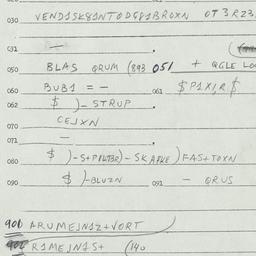 030 VENDISK81NTODG8PIBROXN OT3RZ3
031 —
050 BLAS QRUM (893 051 + QGLE LO
060 BUB1 = — 061 $P1X1R$
062 $ )- STRUP
070 CEJXN
071 —
080 $ )-S+PILTBR)-SK APKE)FAS+TOXN
090 $ )-BLUZN 091 — QRUS
901 ARUMEJN1Z+VORT
902 R1MEJN1S+ (140